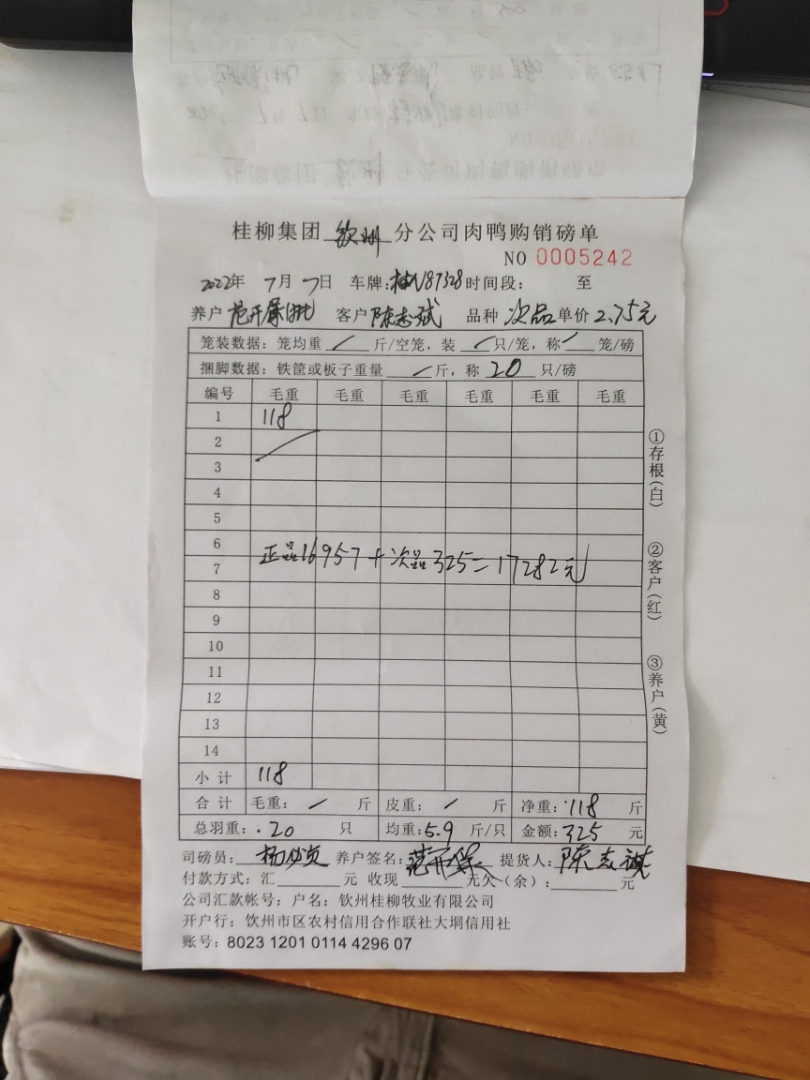 桂柳集团 钦州 分公司肉鸭购销磅单
NO 0005242
2022年 7月 7日 车牌:桂N87328 时间段: 至
养户 范开保 客户 陈志斌 品种 次品 单价 2.75元
笼装数据: 笼均重 / 斤/空笼, 装 / 只/笼, 称 / 笼/磅
捆脚数据: 铁筐或板子重量 / 斤, 称 20 只/磅
编号 毛重 毛重 毛重 毛重 毛重 毛重
1 118
2
3
4
5
6
正品16957+次品325=17282元
7
8
9
10
11
12
13
14
小计 118
合计 毛重: / 斤 皮重: / 斤 净重: 118 斤
总羽重: 20 只 均重: 5.9 斤/只 金额: 325 元
司磅员: 养户签名: 范开保 提货人: 陈志斌
付款方式: 汇 元 收现 元欠(余): 元
公司汇款帐号: 户名: 钦州桂柳牧业有限公司
开户行: 钦州市区农村信用合作联社大垌信用社
账号: 8023 1201 0114 4296 07
①存根(白)
②客户(红)
③养户(黄)